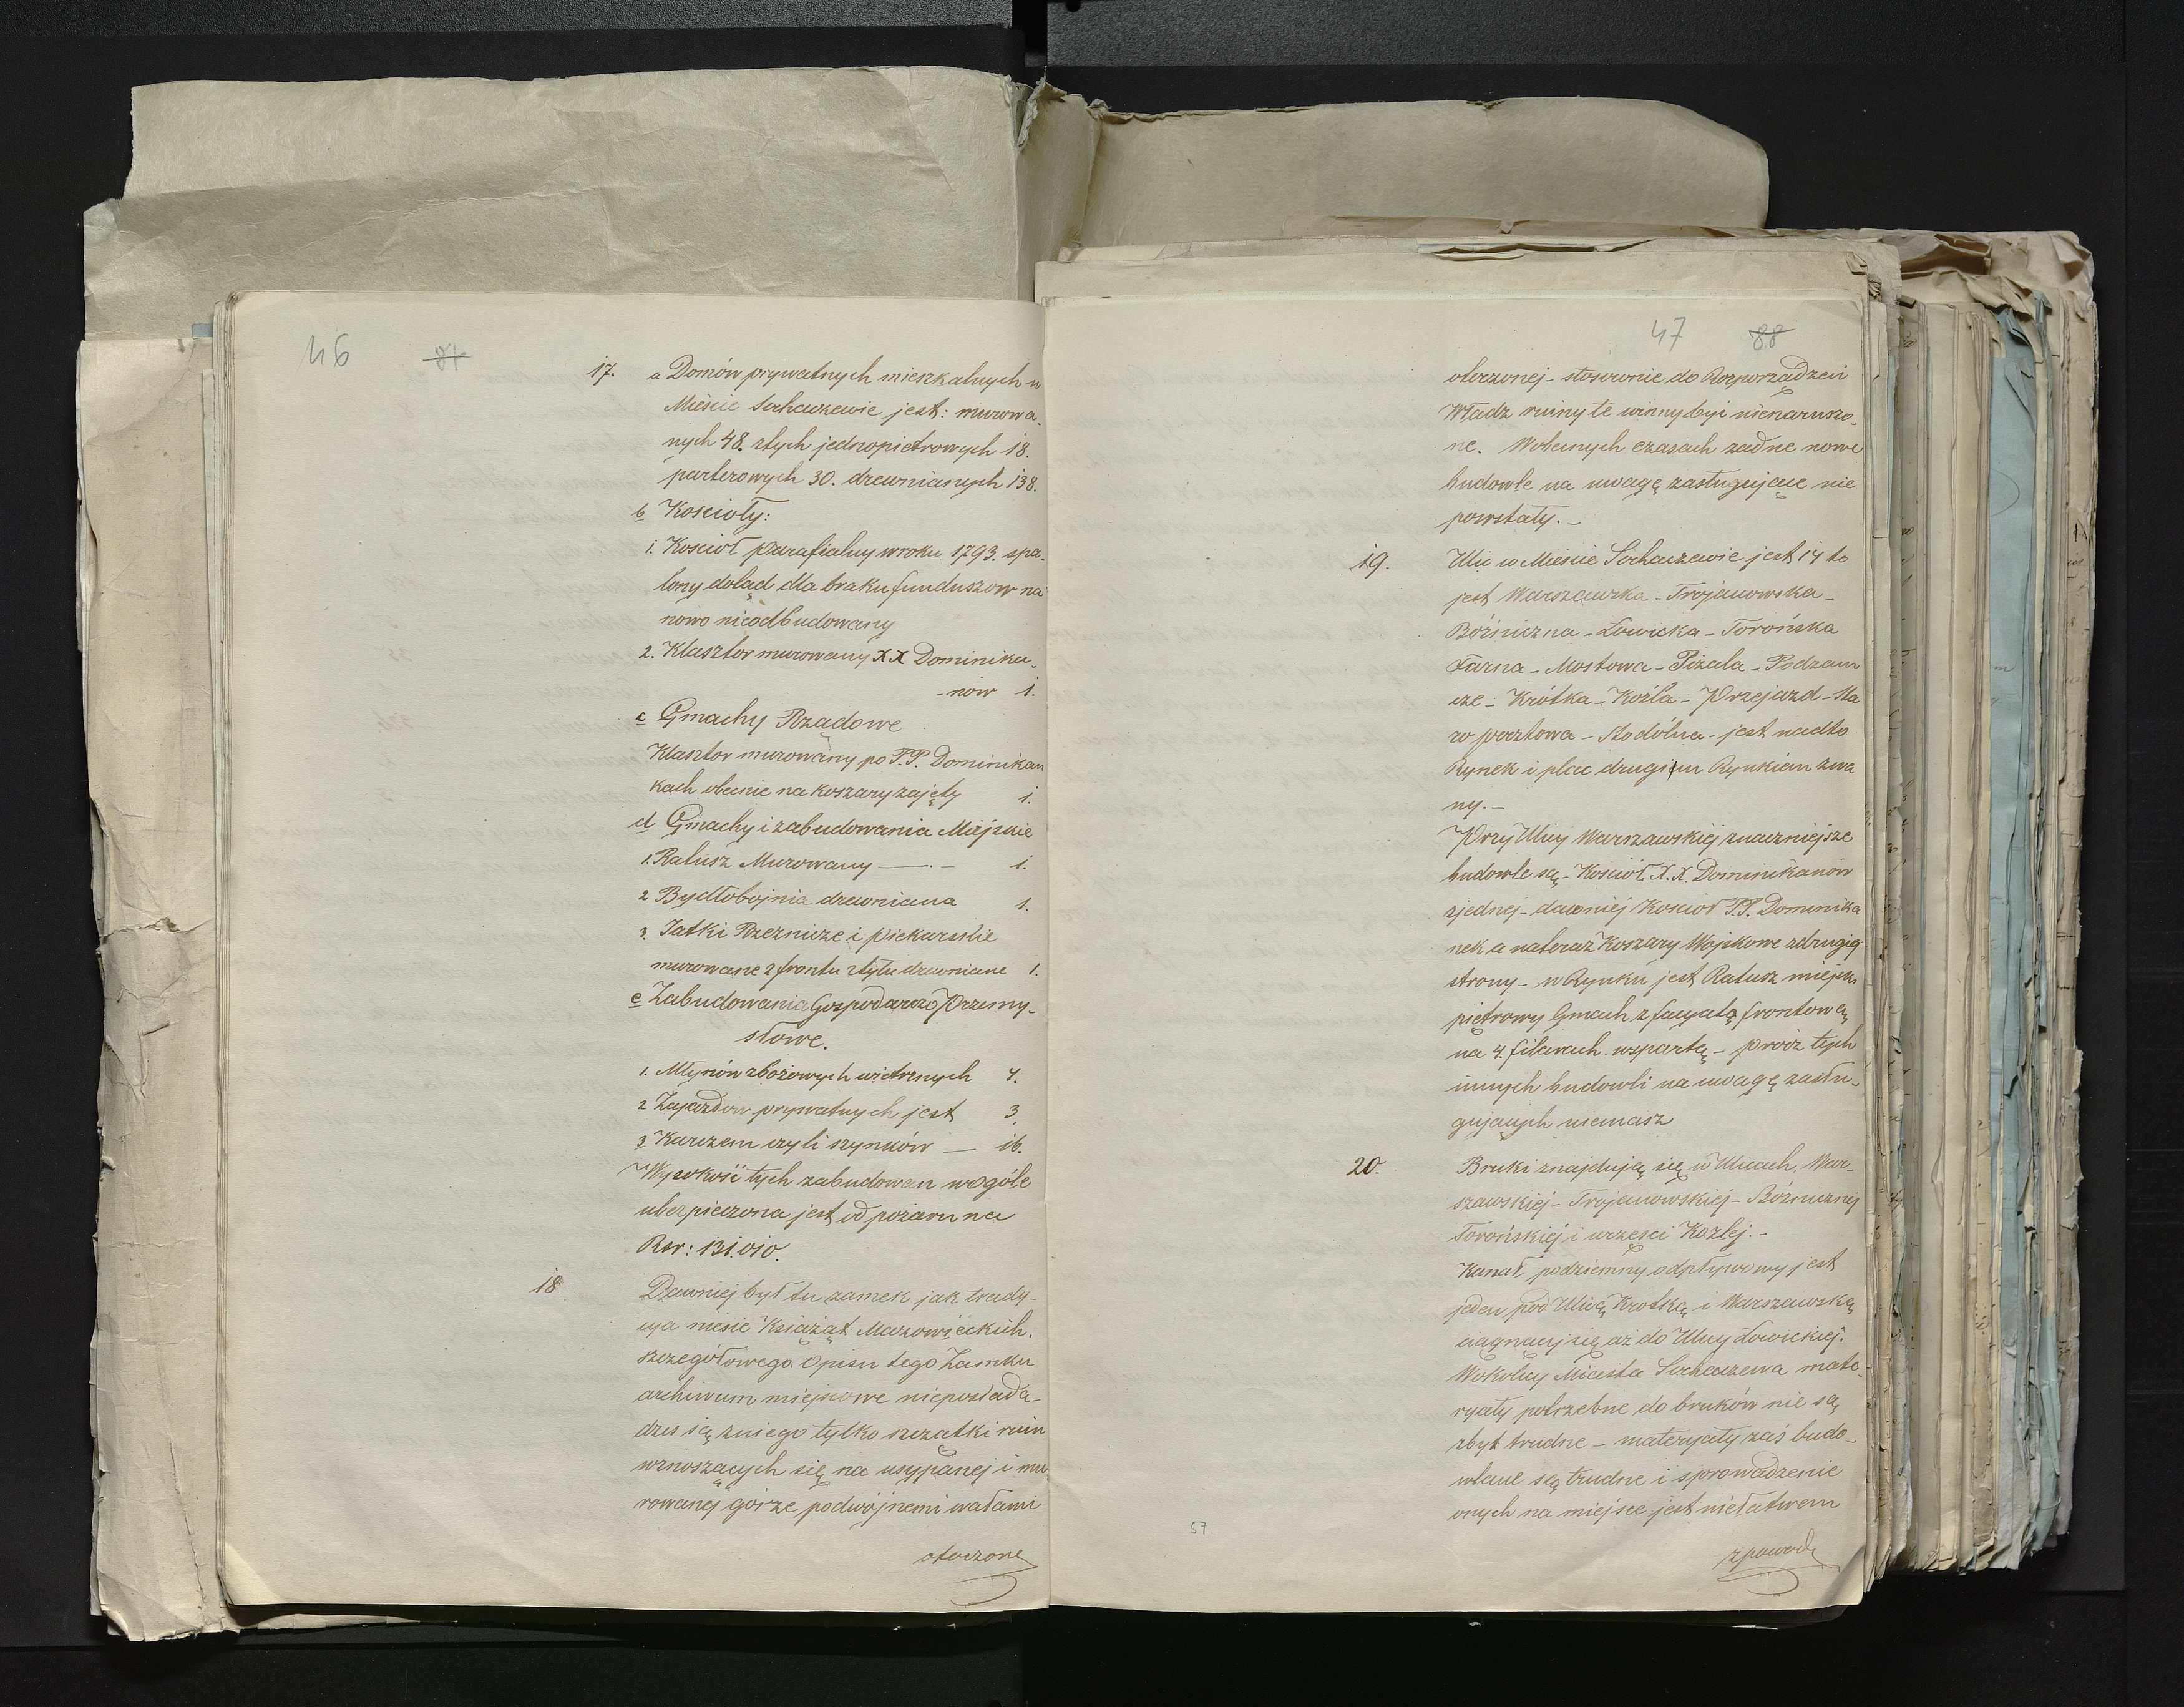 46 87
17. a Domów prywatnych mieszkalnych w
Mieście Sochaczewie jest: murowa-
nych 48. z tych jednopietrowych 18.
parterowych 30. drewnianych 138.
b Kościoły:
1. Kościoł parafialny w roku 1793. spa-
lony dotąd dla braku funduszow na
nowo nieodbudowany
2. Klasztor murowany XX Dominika-
-nów 1.
c Gmachy Rządowe
Klasztor murowany po P.P. Dominikan
kach obecnie na koszary zajęty 1.
d Gmachy i zabudowania Miejskie
1. Ratusz Murowany — 1.
2 Bydłobojnia drewniana 1.
3. Jatki Rzeznicze i piekarskie
murowane z frontu z tyłu drewniane 1.
e Zabudowania Gospodarczo Przemy-
słowe.
1. Młynów zbożowych wietrznych 4.
2 Zajazdow prywatnych jest 3.
3 Karczem czyli szynków — 16.
Wysokość tych zabudowan wogóle
ubezpieczona jest od pożaru na
Rsr: 131.010.
18 Dawniej był tu zamek jak trady-
cya niesie Książąt Mazowieckich.
szczegółowego Opisu tego Zamku
archiwum miejscowe nieposiada-
dziś są z niego tylko szczątki ruin
wznoszących się na usypanej i mu
rowanej górze podwójnemi wałami
otoczonej
47 88
otoczonej - stosownie do Rozporządzeń
Władz ruiny te winny być nienaruszo-
ne. W obecnych czasach żadne nowe
budowle na uwagę zasługujące nie
powstały. -
19. Ulic w Mieście Sochaczewie jest 14 to
jest Warszawska - Trojanowska -
Bóźniczna - Łowicka - Torońska
Farna - Mostowa - Piżala - Podzam
cze - Krótka - Koźla - Przejazd - Sta
ro pocztowa - Stodólna - jest nadto
Rynek i plac drugim Rynkiem zwa
ny. -
Przy Ulicy Warszawskiéj znaczniejsze
budowle są - Kościoł X.X. Dominikanów
z jednej - dawniéj Kościoł P.P. Dominika
nek a nateraz Koszary Wojskowe z drugiéj
strony - w Rynku jest Ratusz miejski
piętrowy Gmach z facyatą frontową
na 4. filarach wspartą - prócz tych
innych budowli na uwagę zasłu-
gujących niemasz
20. Bruki znajdują się w Ulicach. War-
szawskiej - Trojanowskiej - Bóźnicznéj
Torońskiéj i w części Koźlej. -
Kanał podziemny odpływowy jest
jeden pod Ulicą Krotką i Warszawską
ciągnący się aż do Ulicy Łowickiej.
W okolicy Miasta Sochaczewa mate-
ryały potrzebne do bruków nie są
zbyt trudne - materyały zaś budo-
wlane są trudne i sprowadzenie
onych na miejsce jest niełatwem
z powodu
57